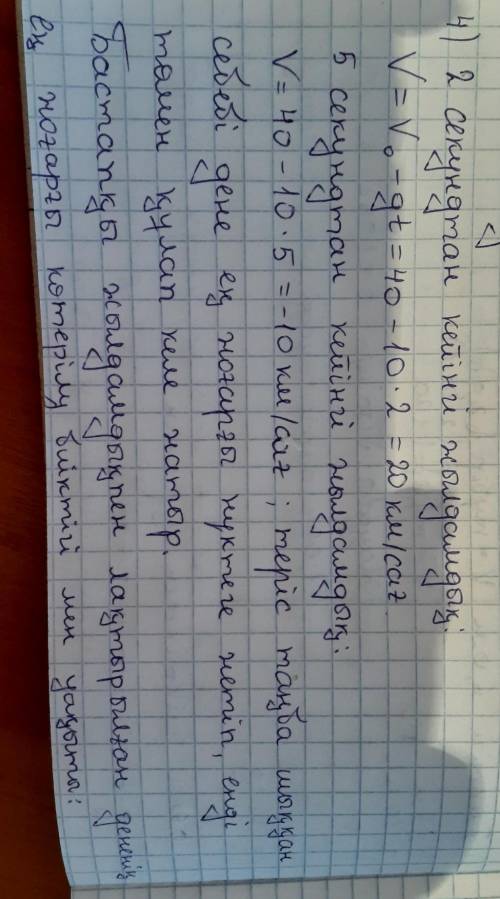 4) 2 секундтан кейінгі жылдамдық:
V = V₀ - gt = 40 - 10 · 2 = 20 км/сағ.
5 секундтан кейінгі жылдамдық:
V = 40 - 10 · 5 = -10 км/сағ ; теріс таңба шыққан
себебі дене ең жоғарғы нүктеге жетіп, енді
төмен құлап келе жатыр.
Бастапқы жылдамдықпен лақтырылған дененің
ең жоғарғы көтерілу биіктігі мен уақыты: